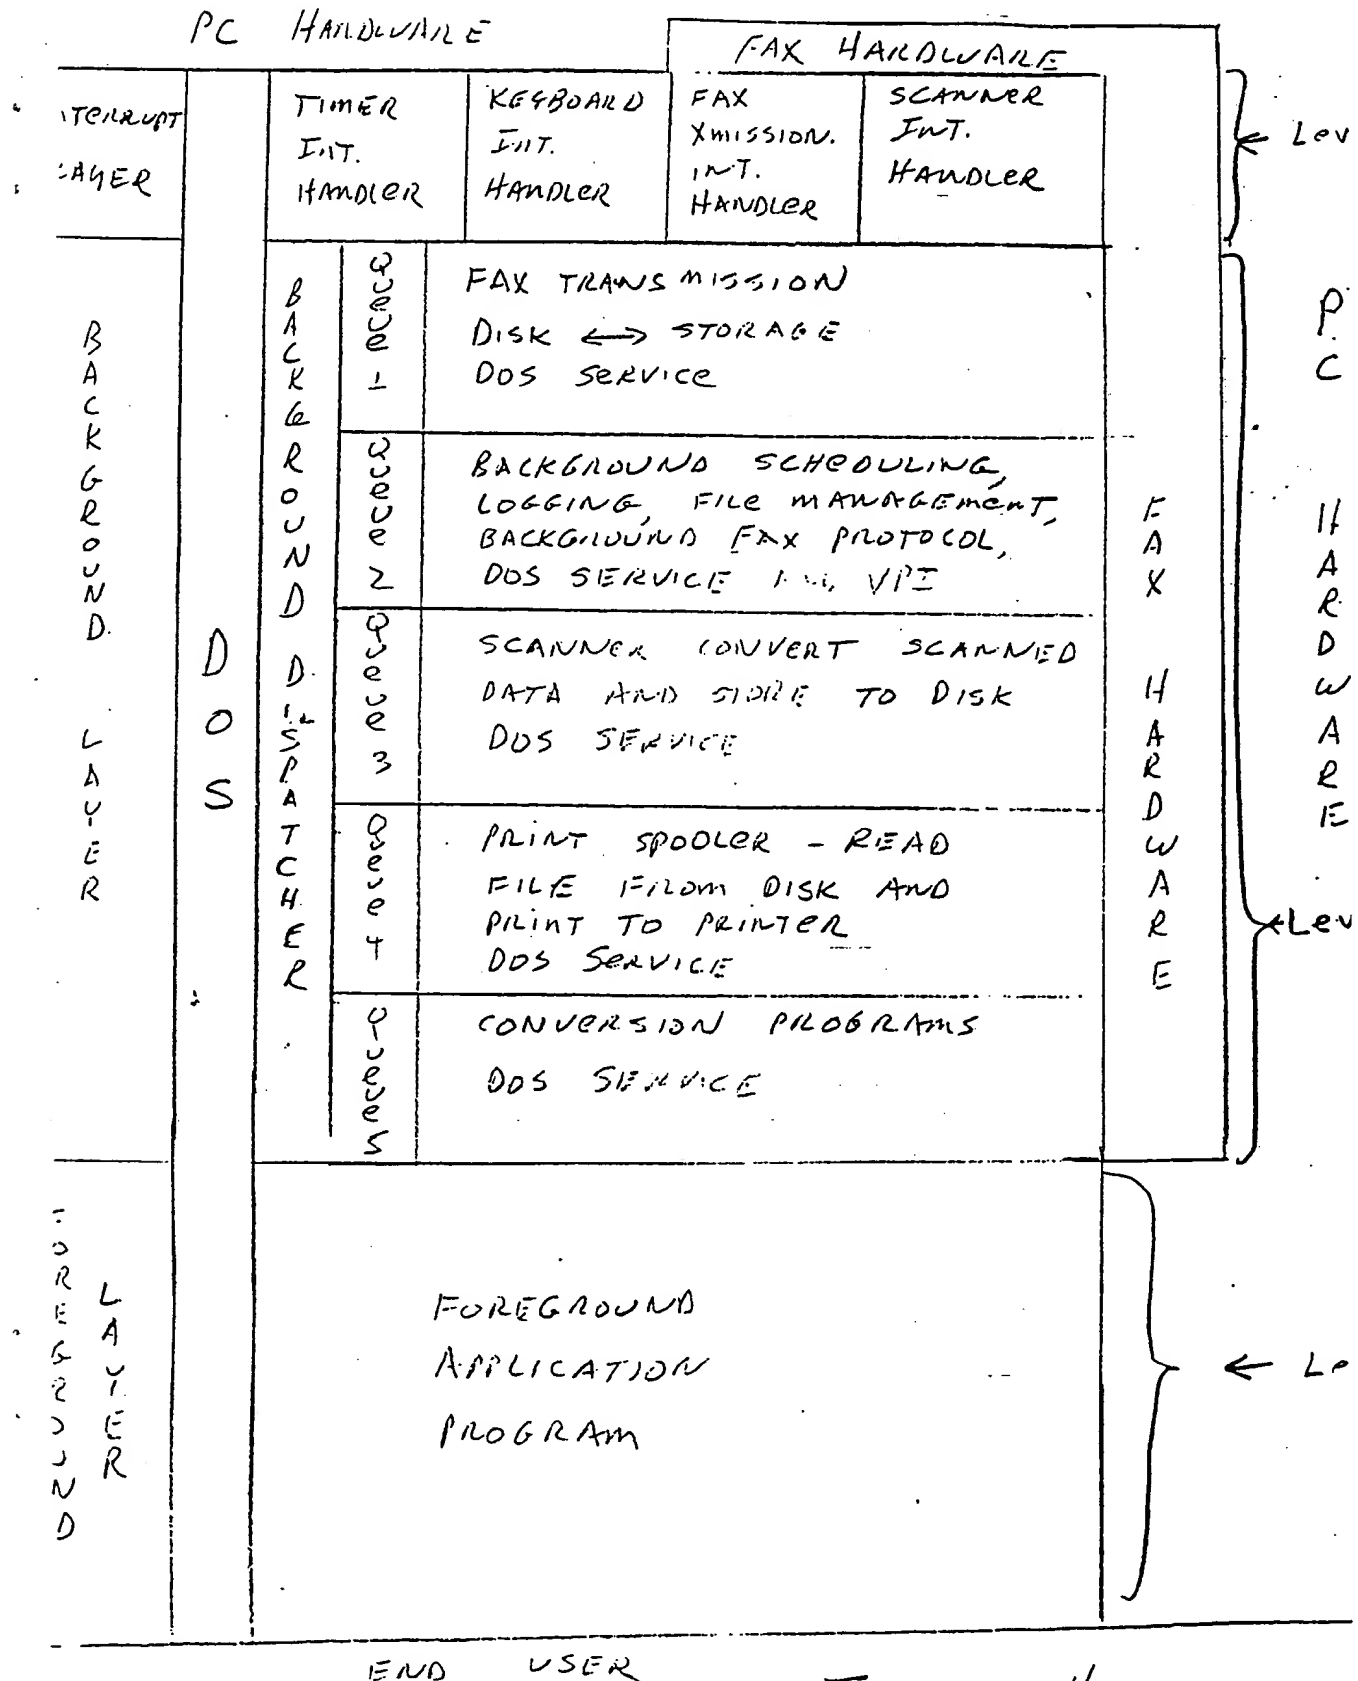 PC HARDWARE
FAX HARDWARE
LAYER
TIMER
INT.
HANDLER
KEYBOARD
INT.
HANDLER
FAX
XMISSION.
INT.
HANDLER
SCANNER
INT.
HANDLER
← Lev
BACKGROUND LAYER
DOS
BACKGROUND DISPATCHER
Queue 1
FAX TRANSMISSION
DISK ↔ STORAGE
DOS SERVICE
Queue 2
BACKGROUND SCHEDULING,
LOGGING, FILE MANAGEMENT,
BACKGROUND FAX PROTOCOL,
DOS SERVICE VPI
Queue 3
SCANNER CONVERT SCANNED
DATA AND STORE TO DISK
DOS SERVICE
Queue 4
PRINT SPOOLER - READ
FILE FROM DISK AND
PRINT TO PRINTER
DOS SERVICE
Queue 5
CONVERSION PROGRAMS
DOS SERVICE
FAX HARDWARE
PC HARDWARE
← Lev
FOREGROUND
LAYER
FOREGROUND
APPLICATION
PROGRAM
← Le
END USER